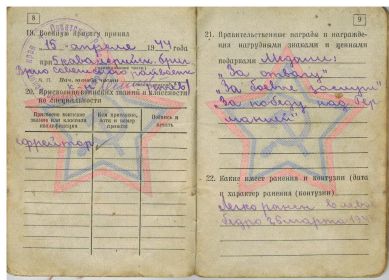 8
19. Военную присягу принял
15 апреля 1944 года
при
20. Присвоение воинских званий и классности
по специальности
Присвоено воинское
звание или классная
квалификация
Кем присвоено,
дата и номер
приказа
Подпись и
печать
ефрейтор
9
21. Правительственные награды и награжде-
ния нагрудными знаками и ценными
подарками Медали:
"За отвагу"
"За боевые заслуги"
"За победу над Гер
манией"
22. Какие имеет ранения и контузии (дата
и характер ранения (контузии)
Легко ранен в левое
бедро 25 марта